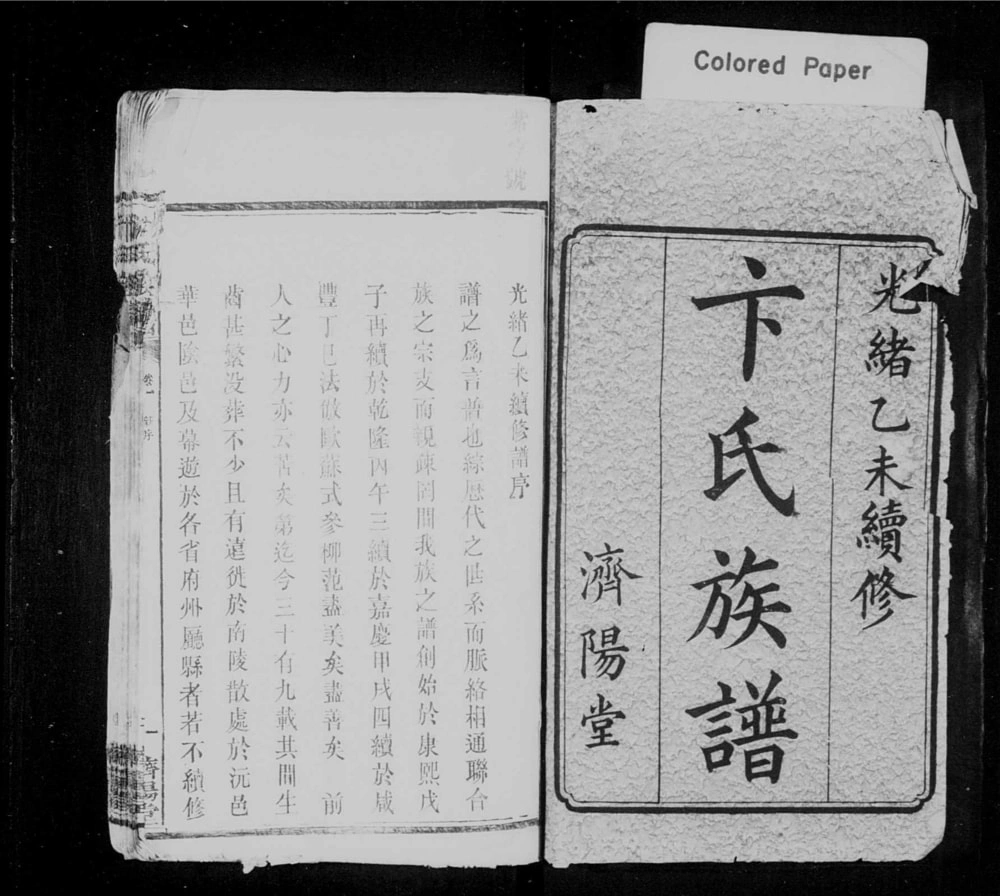 Colored Paper
光緒乙未續修
卞氏族譜
濟陽堂
光緒乙未續修譜序
譜之爲言普也綜歷代之世系而脈絡相通聯合
族之宗支而親疎罔間我族之譜創始於康熙戊
子再續於乾隆丙午三續於嘉慶甲戌四續於咸
豐丁巳法倣歐蘇式參柳范盡美矣盡善矣 前
人之心力亦云苦矣第迄今三十有九載其間生
齒甚繁没葬不少且有遠徙於南陵散處於沅邑
華邑陰邑及幕遊於各省府州廳縣者若不續修
卷一
序
一
濟陽堂